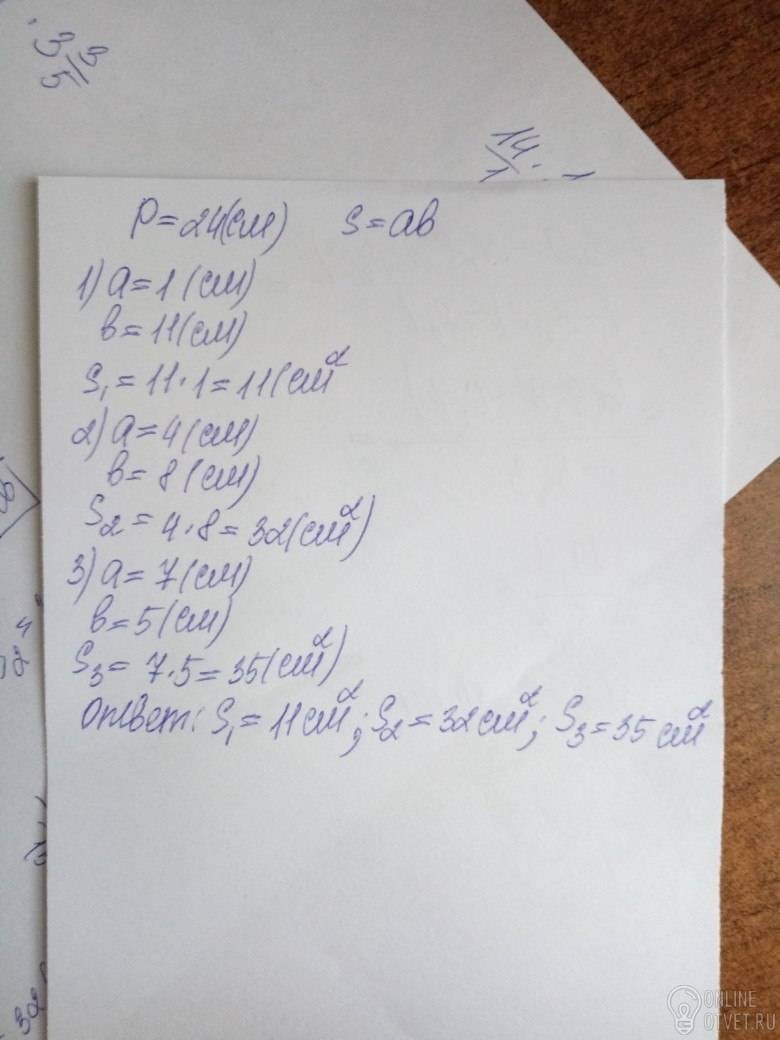 3/5 3
14/1 · 1
P=24(см) S=ab
1) a=1(см)
b=11(см)
S₁=11·1=11(см²
2) a=4(см)
b=8(см)
S₂=4·8=32(см²)
3) a=7(см)
b=5(см)
S₃=7·5=35(см²)
Ответ: S₁=11см²; S₂=32см²; S₃=35см²
32
ONLINE
OTVET.RU